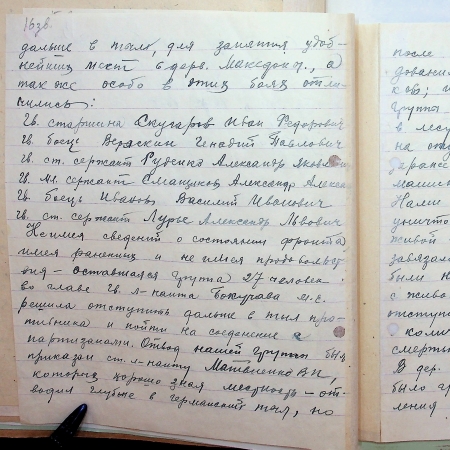 16 зв.
дальше в тыл, для занятия удоб-
нейших мест в дерв. Македон., а
так же особо в этих боях отли-
чились:
Гв. старшина Скугаров Иван Федорович
Гв. боец Веряскин Генадий Павлович
Гв. ст. сержант Руденко Александр Яковлевич
Гв. Мл. сержант Смащиков Александр Алекса
Гв. боець Иванов Василий Иванович
Гв. ст. сержант Лурье Александр Львович
Не имея сведений о состоянии фронта
имея раненных и не имея продовольст-
вия - оставшаяся группа 27 человек
во главе Гв. л-нанта Бокучава М.Е.
решила отступить дальше в тыл про-
тивника и пойти на соединение с
партизанами. Отвод нашей группы был
приказан ст. л-нанту Матвиенко В.П.,
который хорошо зная местность - от-
водил глубже в германский тыл, но
после
довани
ков;
группы
в лесу
на от
заранее
машин
Нами
уничто
живой
завязал
были н
с живо
отступ
коли
смерть
В дер.
было гр
ления